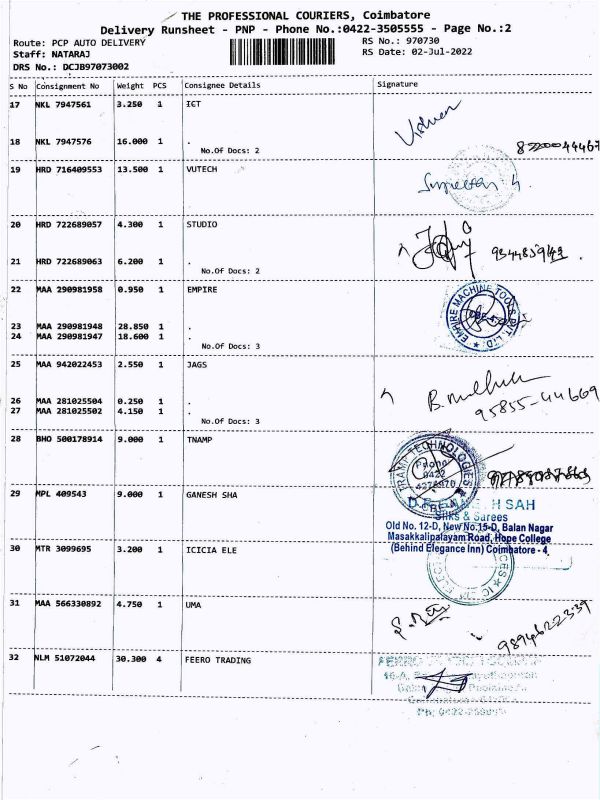 THE PROFESSIONAL COURIERS, Coimbatore
Delivery Runsheet - PNP - Phone No.:0422-3505555 - Page No.:2
Route: PCP AUTO DELIVERY RS No.: 970730
Staff: NATARAJ RS Date: 02-Jul-2022
DRS No.: DCJB97073002
S No Consignment No Weight PCS Consignee Details Signature
17 NKL 7947561 3.250 1 ICT
18 NKL 7947576 16.000 1 .
No.Of Docs: 2
19 HRD 716409553 13.500 1 VUTECH
20 HRD 722689057 4.300 1 STUDIO
21 HRD 722689063 6.200 1 .
No.Of Docs: 2
22 MAA 290981958 0.950 1 EMPIRE
EMPIRE MACHINE TOOLS PVT. LTD.
23 MAA 290981948 28.850 1 .
24 MAA 290981947 18.600 1 .
No.Of Docs: 3
25 MAA 942022453 2.550 1 JAGS
26 MAA 281025504 0.250 1 .
27 MAA 281025502 4.150 1 .
95855-44669
No.Of Docs: 3
28 BHO 500178914 9.000 1 TNAMP
TECHNOLOGIES
Phone
0422
29 MPL 409543 9.000 1 GANESH SHA
SAH
Silks & Sarees
Old No. 12-D, New No.15-D, Balan Nagar
Masakkalipalayam Road, Hope College
(Behind Elegance Inn) Coimbatore - 4
30 MTR 3099695 3.200 1 ICICIA ELE
31 MAA 566330892 4.750 1 UMA
9894622339
32 NLM 51072044 30.300 4 FEERO TRADING
FEERO